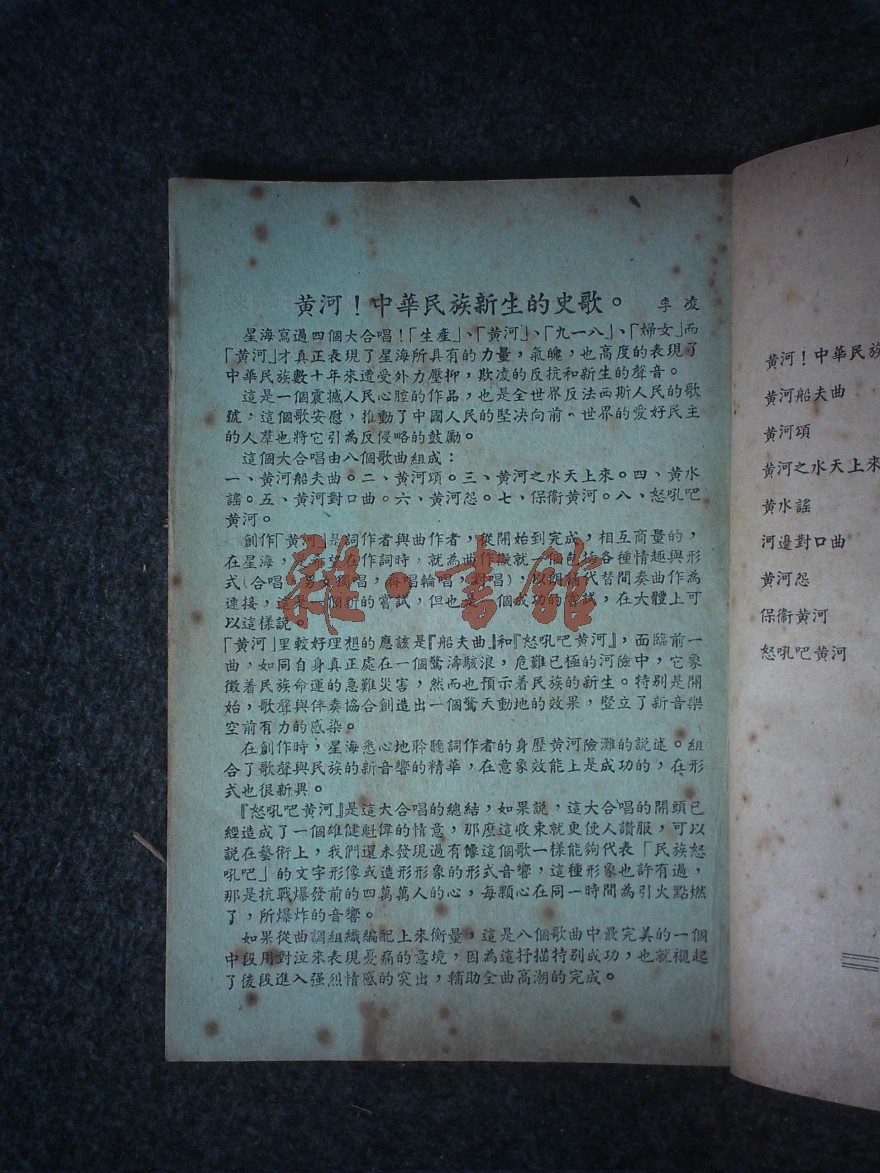 黄河！中華民族新生的史歌。 李凌
星海寫過四個大合唱！「生產」、「黃河」、「九一八」、「婦女」而
「黄河」才真正表現了星海所具有的力量，氣魄，也高度的表現了
中華民族數十年來遭受外力壓抑，欺凌的反抗和新生的聲音。
這是一個震撼人民心腔的作品，也是全世界反法西斯人民的歌
號，這個歌安慰，推動了中國人民的堅决向前、世界的爱好民主
的人羣也將它引為反侵略的鼓勵。
這個大合唱由八個歌曲組成：
一、黄河船夫曲。二、黄河頌。三、黄河之水天上來。四、黄水
謠。五、黄河對口曲。六、黄河怨。七、保衞黄河。八、怒吼吧
黄河。
創作「黄河」是詞作者與曲作者，從開始到完成，相互商量的，
在星海，在作詞時，就為曲作者就一個包括各種情趣與形
式（合唱，獨唱，輪唱，對唱），以朗誦代替間奏曲作為
連接，這是一個新的嘗試，但也是一個成功的嘗試，在大體上可
以這樣說。
「黄河」里較好理想的應該是『船夫曲』和『怒吼吧黄河』，面臨前一
曲，如同自身真正處在一個驚濤駭浪，危難已極的河險中，它象
徵着民族命運的急難災害，然而也預示着民族的新生。特别是開
始，歌聲與伴奏協合創造出一個驚天動地的效果，竪立了新音樂
空前有力的感染。
在創作時，星海悉心地聆聽詞作者的身歷黄河險灘的説述。組
合了歌聲與民族的新音響的精華，在意象效能上是成功的，在形
式也很新異。
『怒吼吧黄河』是這大合唱的總結，如果説，這大合唱的開頭已
經造成了一個雄健魁偉的情意，那麽這收束就更使人讚服，可以
説在藝術上，我們還未發現過有像這個歌一樣能夠代表「民族怒
吼吧」的文字形像或造形形象的形式音響，這種形象也許有過，
那是抗戰爆發前的四萬萬人的心，每顆心在同一時間為引火點燃
了，所爆炸的音響。
如果從曲調組織編配上來衡量，這是八個歌曲中最完美的一個
中段用對泣來表現憂痛的意境，因為這抒描特别成功，也就襯起
了後段進入强烈情感的突出，輔助全曲高潮的完成。
雜·書館
黃河！中華民族
黃河船夫曲
黃河頌
黃河之水天上來
黃水謠
河邊對口曲
黃河怨
保衞黃河
怒吼吧黃河